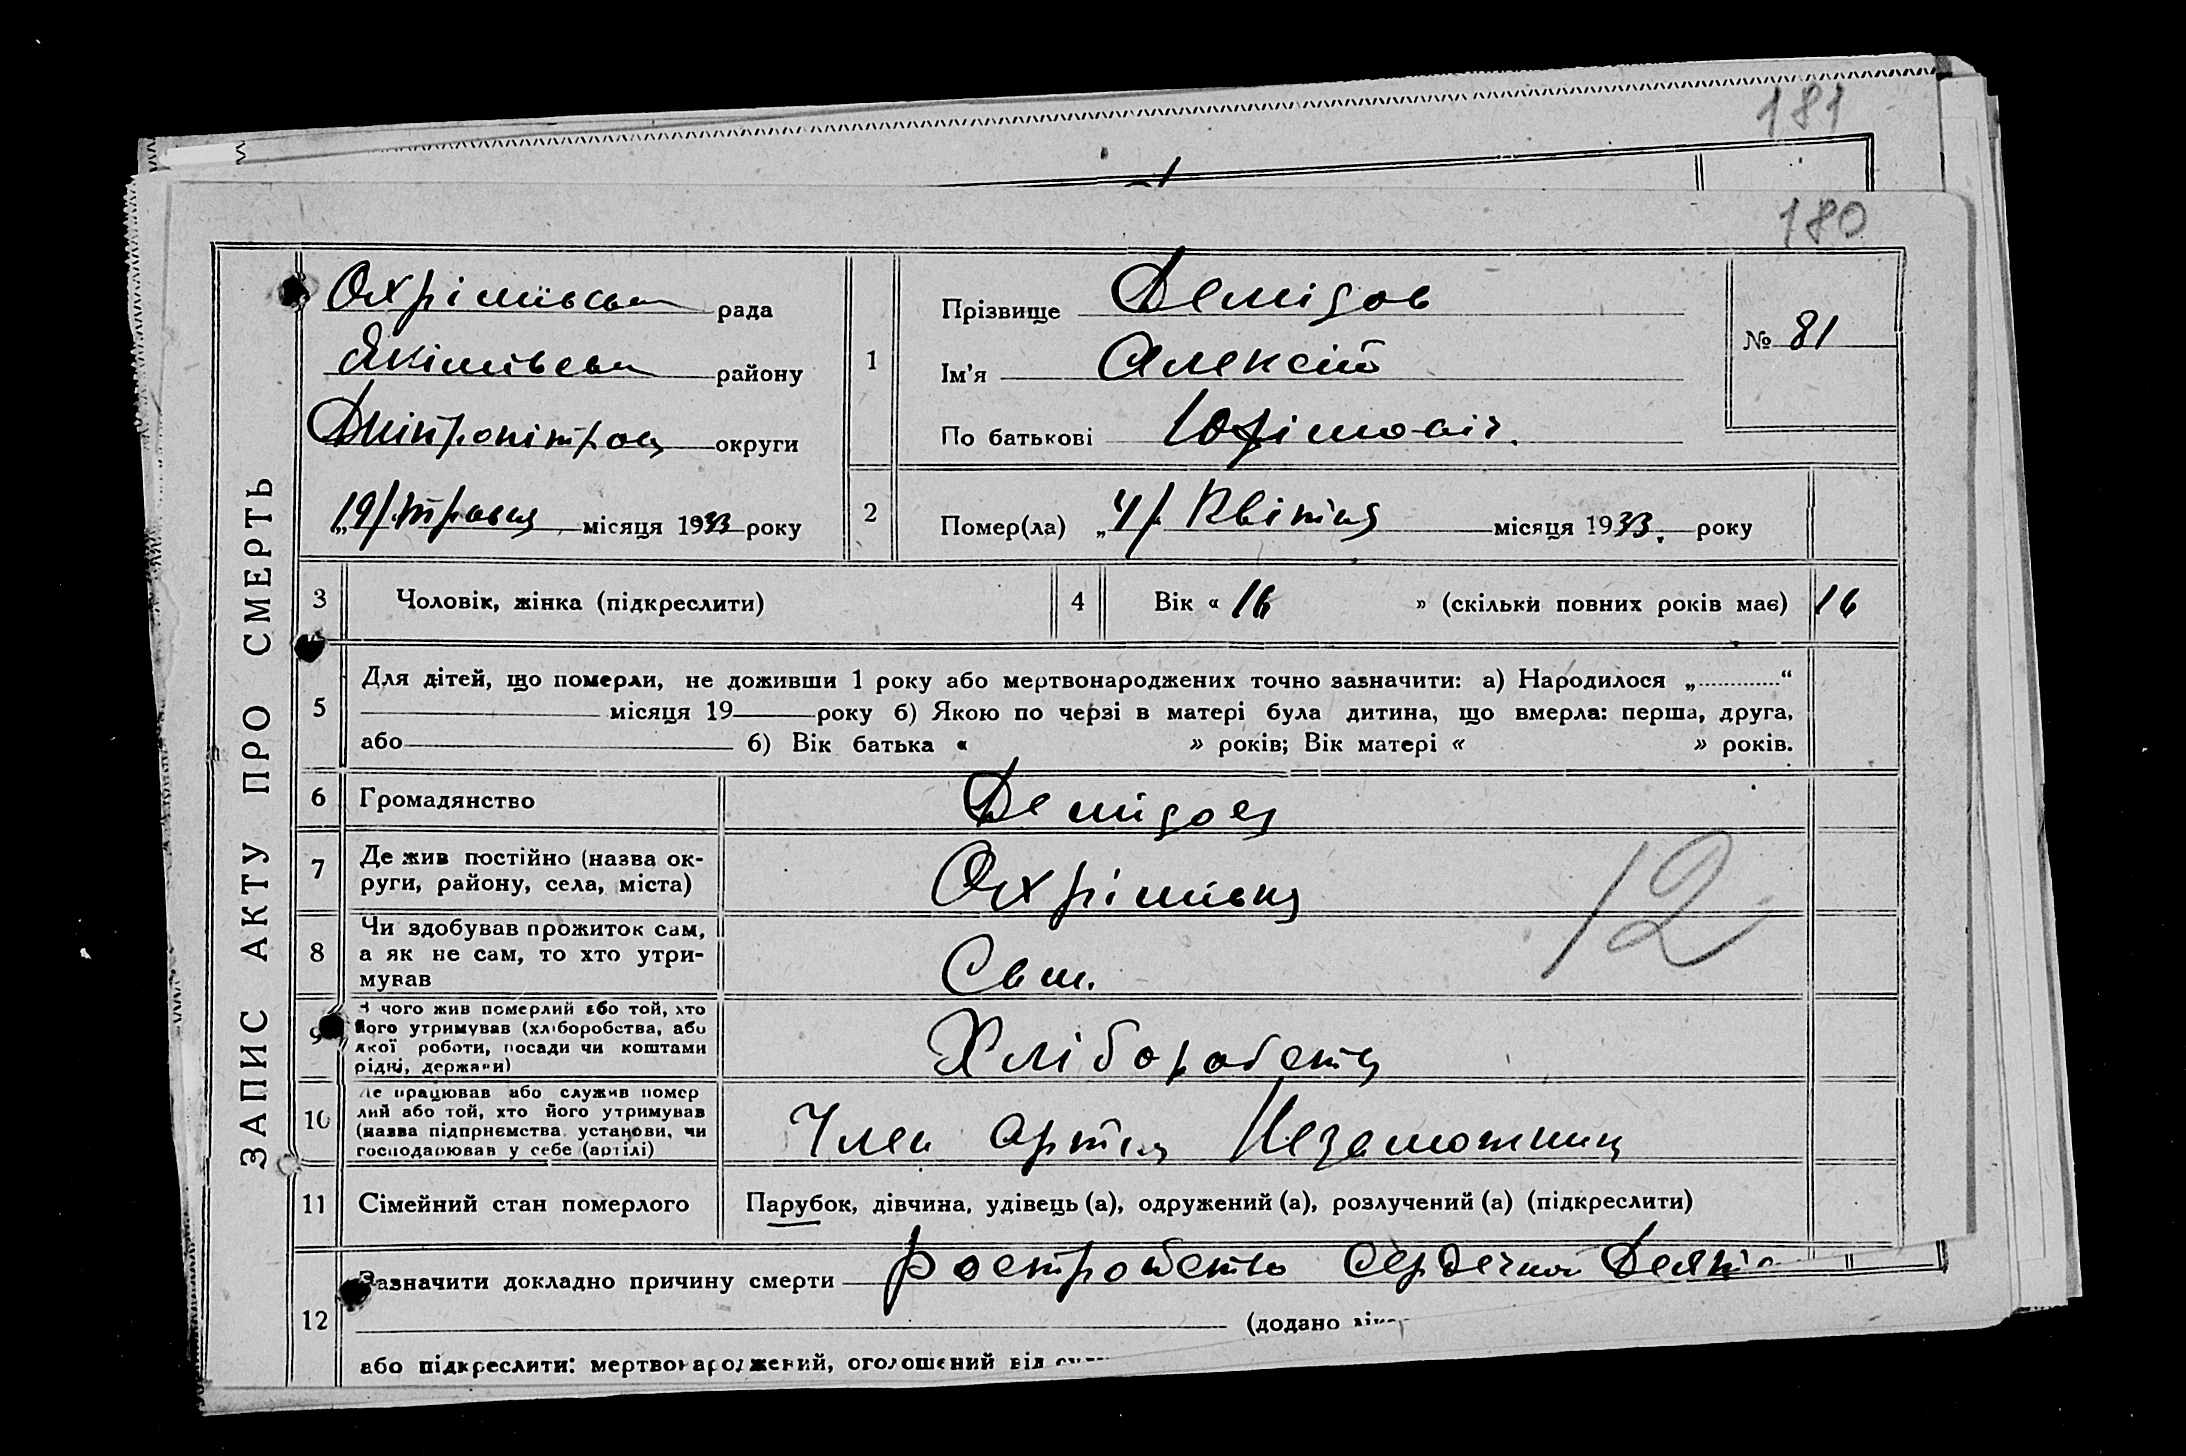 181
180
ЗАПИС АКТУ ПРО СМЕРТЬ
Охрімівська рада
Якімівська району
Дніпропітров округи
„19/ травня місяця 1933 року
1
Прізвище Демідов
Ім'я Алексій
По батькові Юхімовіч.
№ 81
2
Помер(ла) „4/ Квітня місяця 1933. року
3 Чоловік, жінка (підкреслити)
4 Вік « 16 » (скільки повних років має) 16
5
Для дітей, що померли, не доживши 1 року або мертвонароджених точно зазначити: а) Народилося „ “
місяця 19 року б) Якою по черзі в матері була дитина, що вмерла: перша, друга,
або б) Вік батька « » років; Вік матері « » років.
6 Громадянство
7 Де жив постійно (назва ок-
руги, району, села, міста)
Охрімівка
12
8 Чи здобував прожиток сам,
а як не сам, то хто утри-
мував
Сам.
9 З чого жив померлий або той, хто
його утримував (хліборобства, або
якої роботи, посади чи коштами
рідні, держави)
Хліборобств
10 Де працював або служив помер
лий або той, хто його утримував
(назва підприємства установи, чи
господарював у себе (артілі)
Член артіл Незаможник
11 Сімейний стан померлого
Парубок, дівчина, удівець (а), одружений (а), розлучений (а) (підкреслити)
12
Зазначити докладно причину смерти ростройство Сердечной Деят
(додано лік
або підкреслити: мертвонароджений, оголошений від